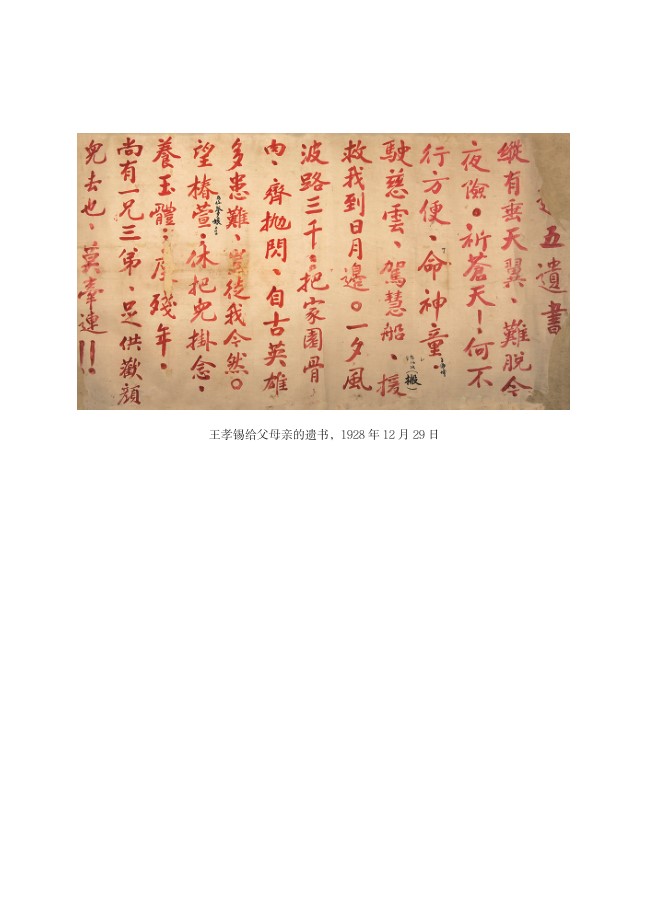 五遺書
縱有垂天翼、難脫今
夜險。祈蒼天！何不
行方便、命神童。
駛慈雲、駕慧船、援
（搬）
救我到日月邊。一夕風
波路三千；把家園骨
肉、齊抛閃、自古英雄
多患難、豈徒我今然。
望椿萱；休把兒掛念、
養玉體；度殘年。
尚有一兄三弟、足供歡顏
兒去也、莫牽連！！
王孝锡给父母亲的遗书，1928 年 12 月 29 日